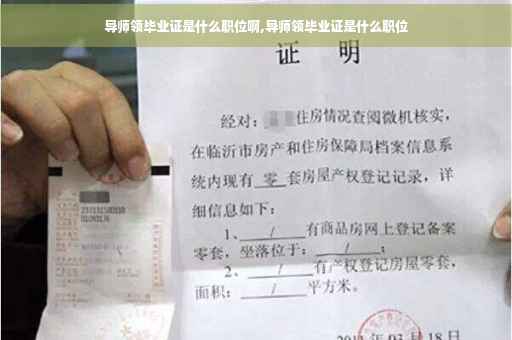 导师领毕业证是什么职位啊,导师领毕业证是什么职位
证 明
经对：住房情况查阅微机核实，
在临沂市房产和住房保障局档案信息系
统内现有 零 套房屋产权登记记录，详
细信息如下：
1、 / 有商品房网上登记备案
零套，坐落位于： / ；
2、 / 有产权登记房屋零套，
面积： / 平方米。
03月18日